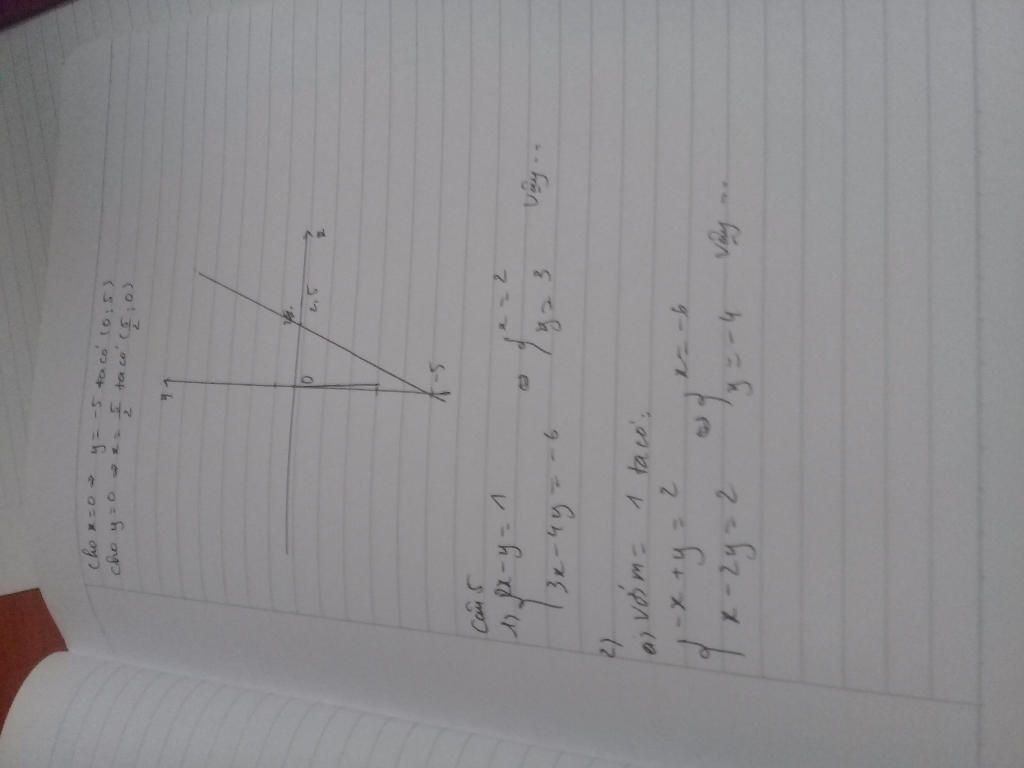 Cho x = 0 ⇒ y = -5 ta có (0; 5)
Cho y = 0 ⇒ x = 5/2 ta có (5/2; 0)
y
O
2,5
x
-5
Câu 5
1) { 2x - y = 1 ⇔ { x = 2
3x - 4y = -6 y = 3 Vậy...
2)
a) Với m = 1 ta có:
{ -x + y = 2 ⇔ { x = -6
x - 2y = 2 y = -4 Vậy...